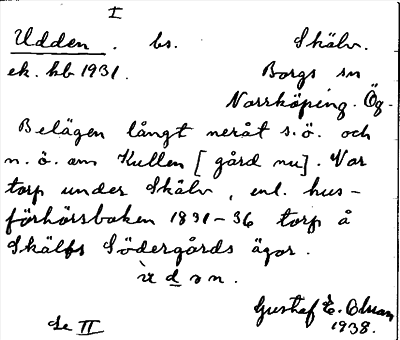 I
Udden. bs. Skälv.
ek. kb 1931. Borgs sn
Norrköping. Ög.
Belägen långt neråt s.ö. och
n.ö. om Kullen [gård nu]. Var
torp under Skälv, enl. hus-
förhörsboken 1831-36 torp å
Skälfs Södergårds ägor.
ùdən.
Gustaf E. Olsson
1938.
Se II